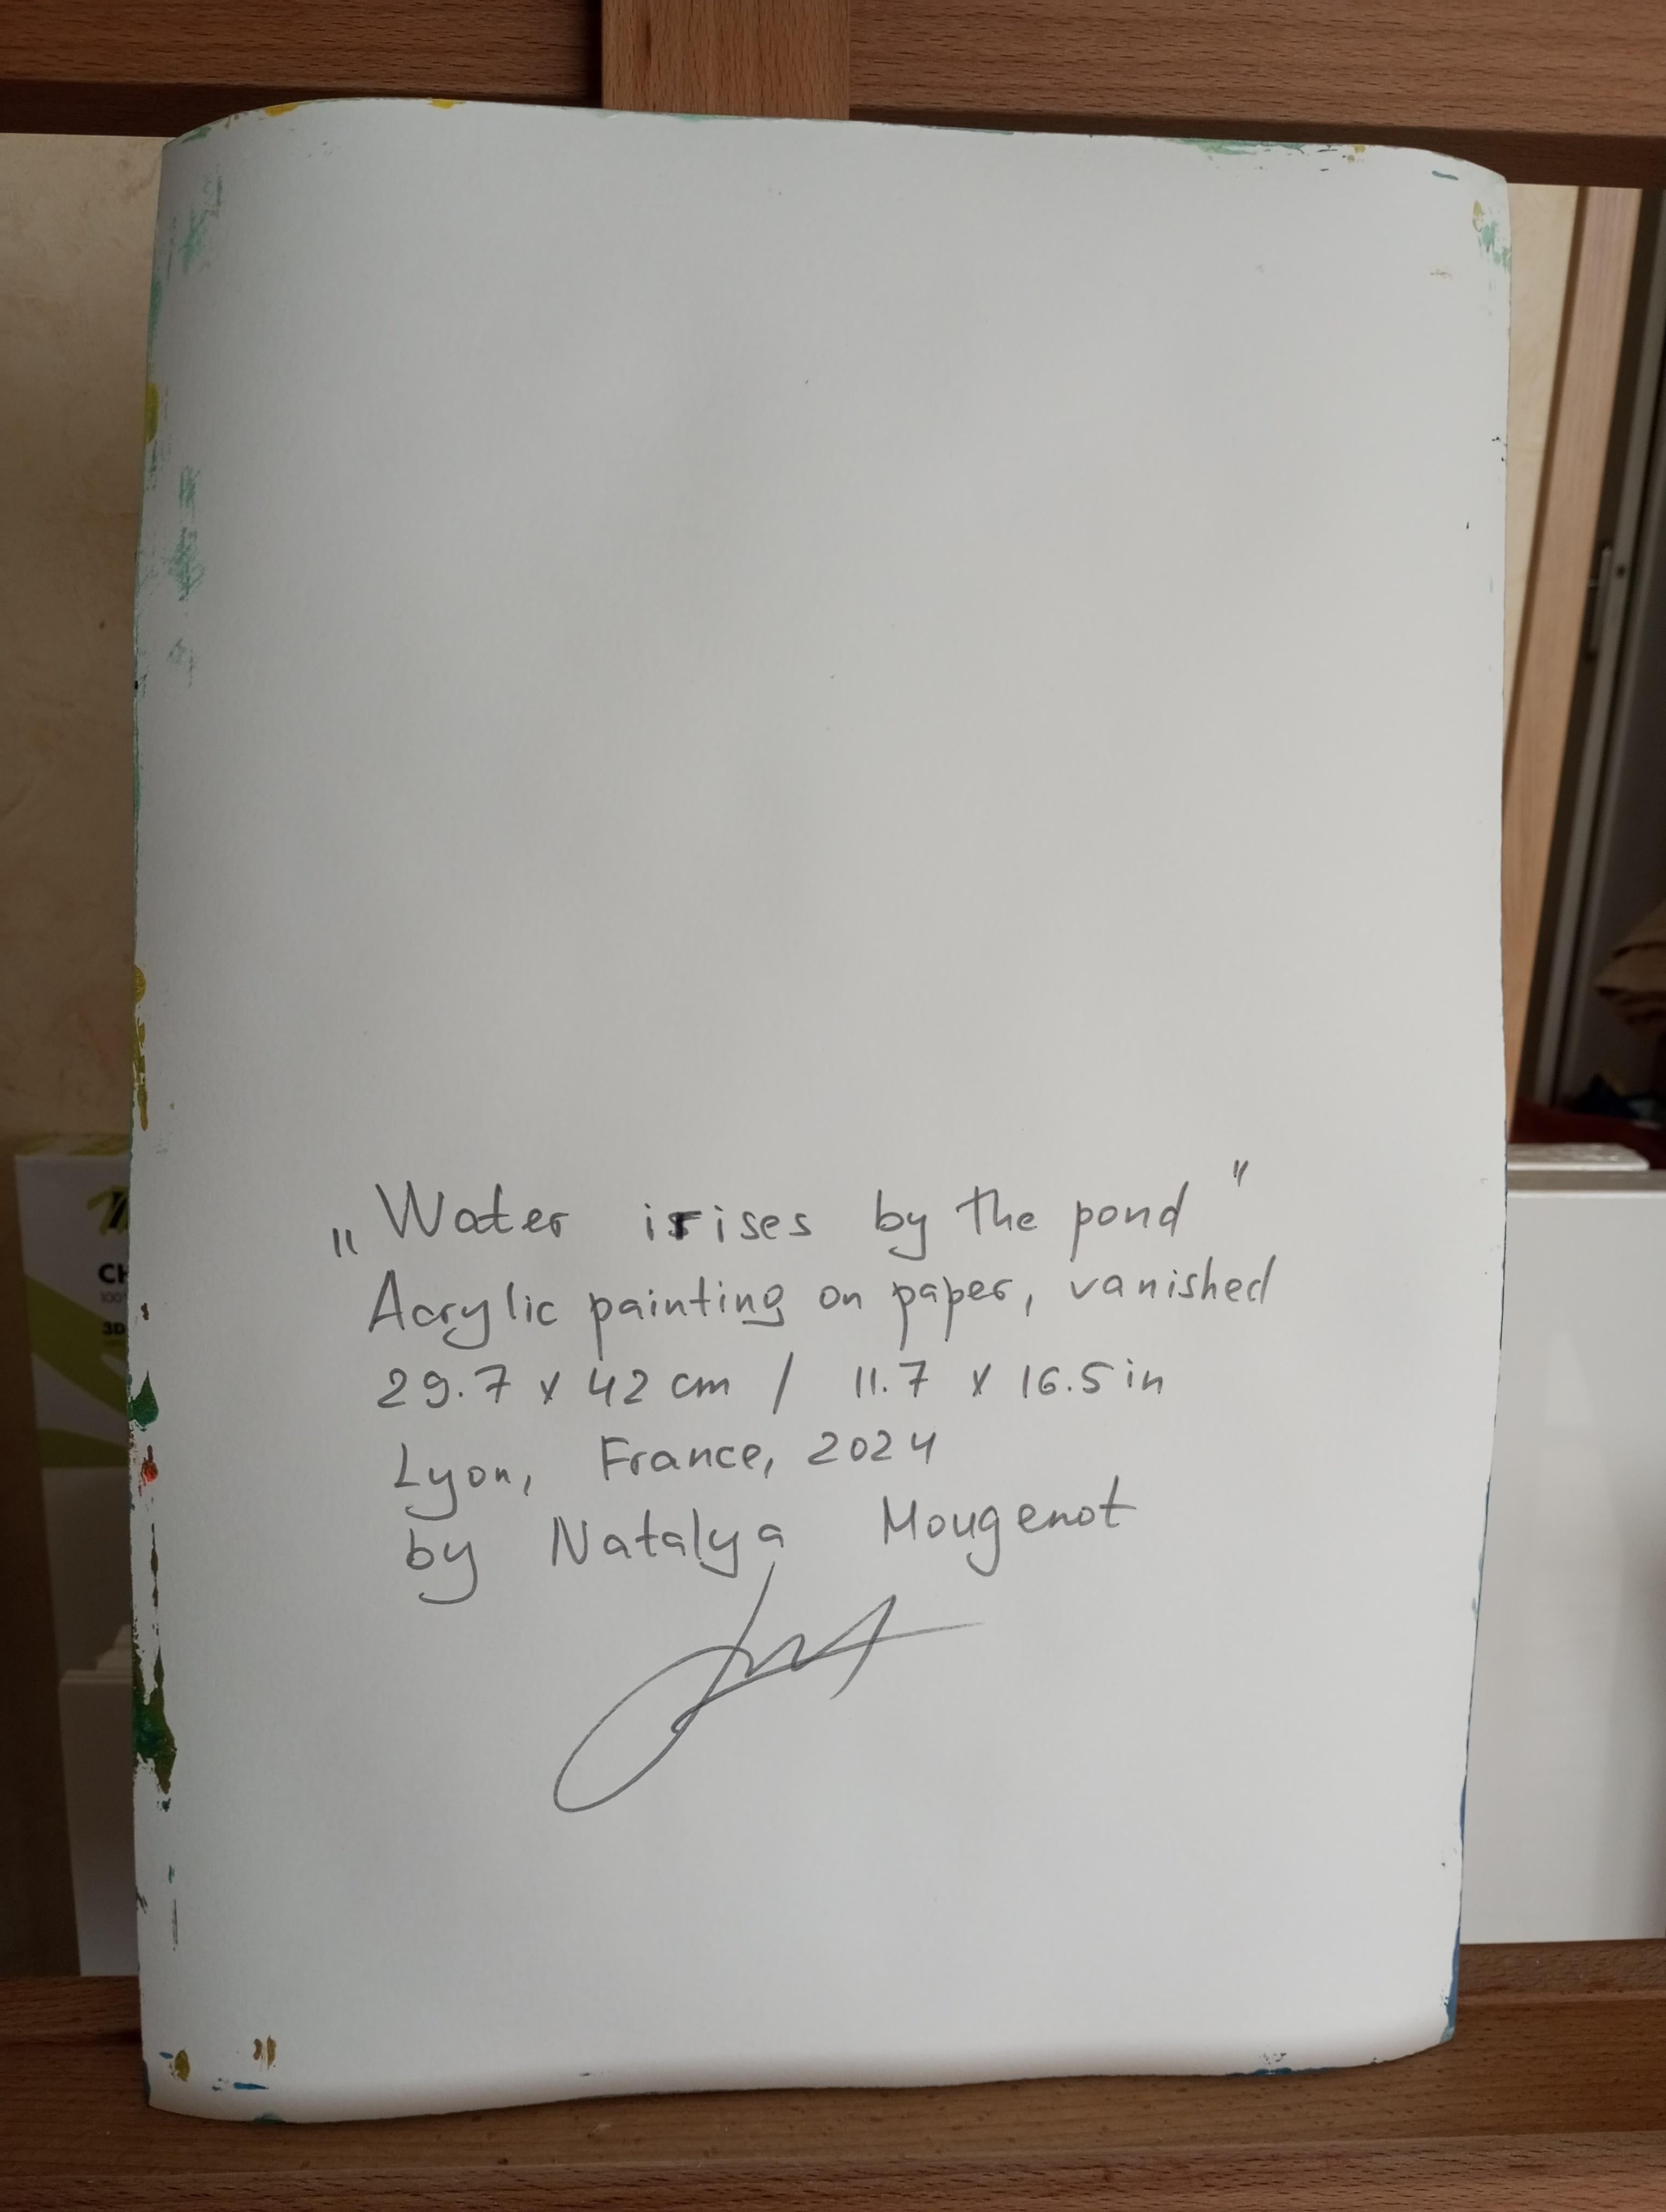 „Water irises by the pond"
Acrylic painting on paper, vanished
29.7 x 42 cm / 11.7 x 16.5 in
Lyon, France, 2024
by Natalya Mougenot
CH
100
3D